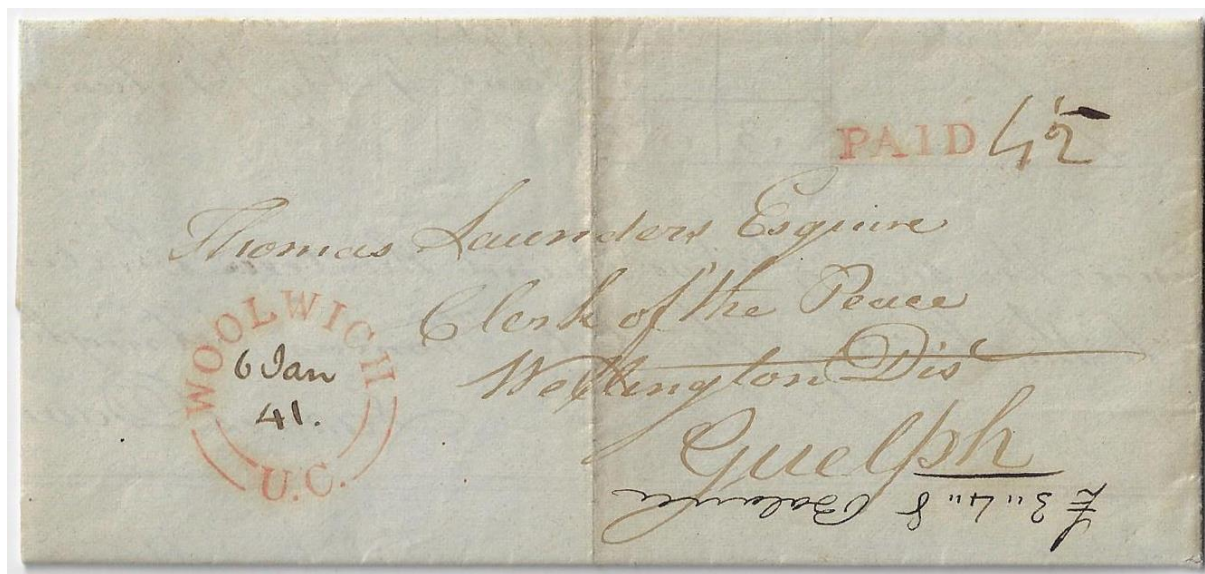 PAID 4½
Thomas Saunders Esquire
Clerk of the Peace
Wellington Dist
Guelph
WOOLWICH
6 Jan
41.
U.C.
£3"4"8 Balance